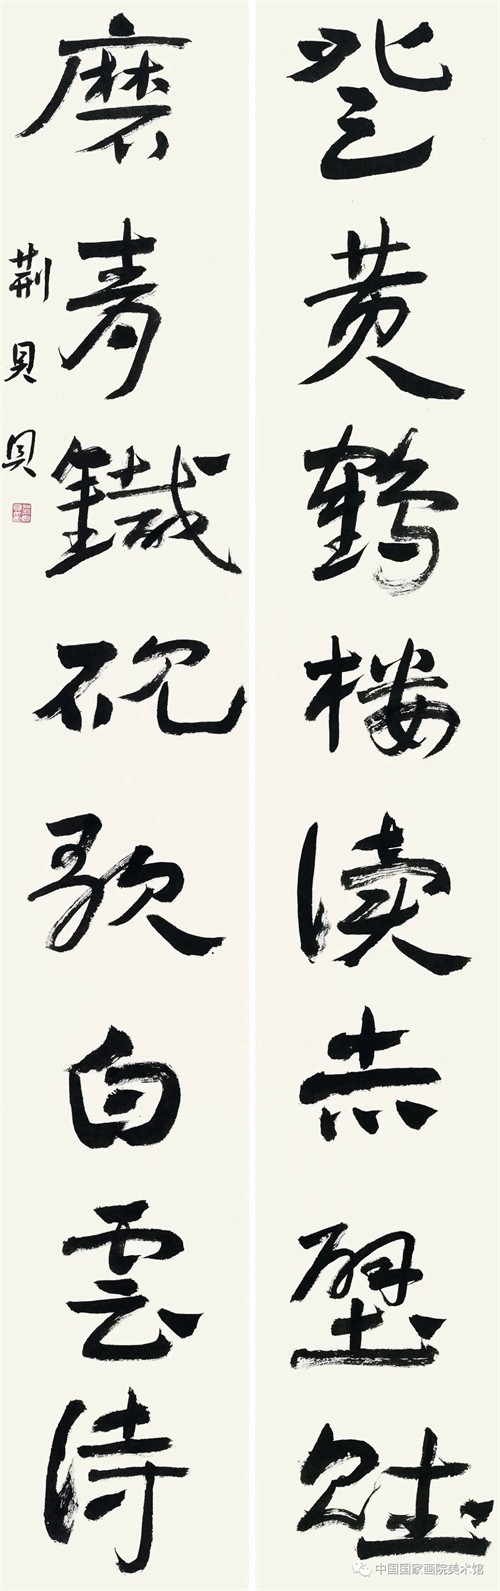 登黄鹤楼读赤壁赋
磨青鐵砚歌白雲诗
荆贝贝
中国国家画院美术馆